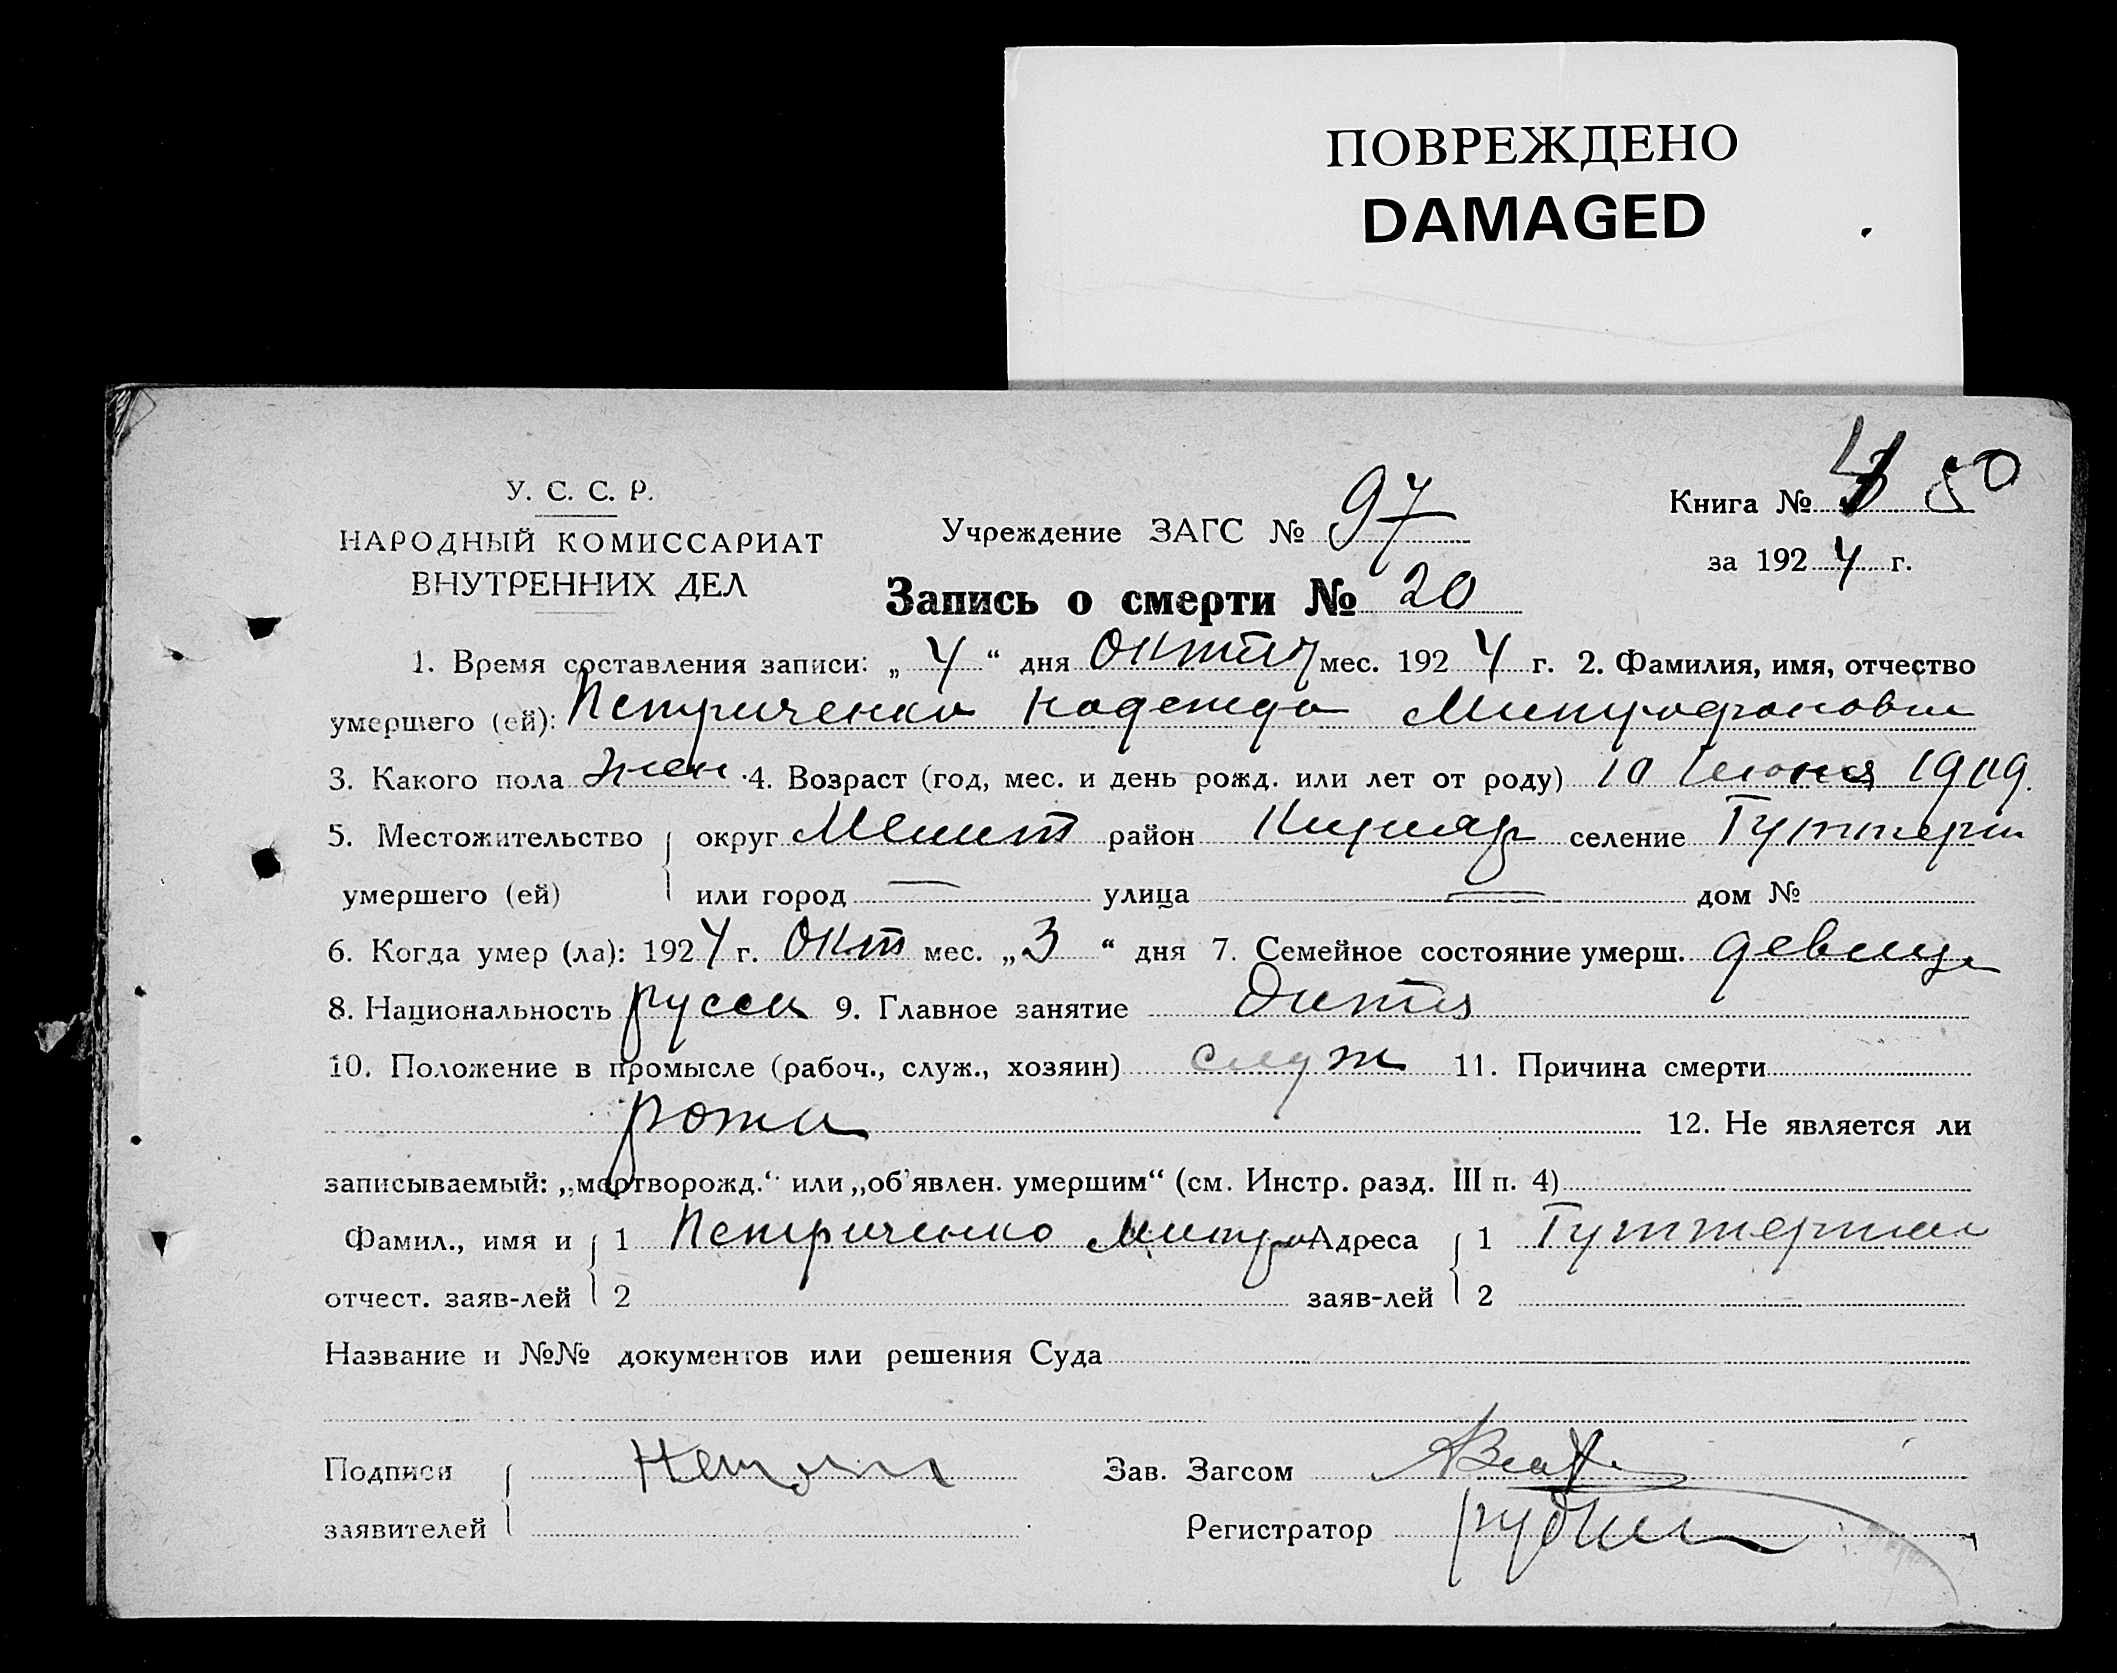 ПОВРЕЖДЕНО
DAMAGED
У. С. С. Р.
НАРОДНЫЙ КОМИССАРИАТ
ВНУТРЕННИХ ДЕЛ
Учреждение ЗАГС № 97
Книга № 80
за 1924 г.
Запись о смерти № 20
1. Время составления записи: „ 4 “ дня Октяб мес. 1924 г. 2. Фамилия, имя, отчество
умершего (ей): Петриченко Надежда Митрофановн
3. Какого пола Жен 4. Возраст (год, мес. и день рожд. или лет от роду) 10 Июня 1909.
5. Местожительство округ Мелит район селение Гуттерт
умершего (ей) или город — улица — дом №
6. Когда умер (ла): 1924 г. Окт мес. „ 3 “ дня 7. Семейное состояние умерш. девица
8. Национальность русск 9. Главное занятие Дитя
10. Положение в промысле (рабоч., служ., хозяин) служ 11. Причина смерти
рожа 12. Не является ли
записываемый: „мертворожд.“ или „об'явлен. умершим“ (см. Инстр. разд. III п. 4)
Фамил., имя и 1 Петриченко Митро Адреса 1 Гуттерталь
отчест. заяв-лей 2 заяв-лей 2
Название и №№ документов или решения Суда
Подписи Зав. Загсом
заявителей Регистратор